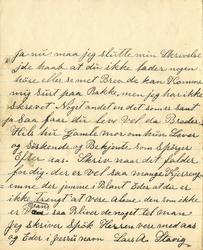 ja nu maa jeg slutte min Skrivelse
i det haab at du ikke lader nogen
høre eller se met Brev de kan komme
mig surt paa Bakke, men jeg har ikke
skrevet Noget andet en det som er sant
ja saa faar du lev vel da Broder
Hils hin Gamle mor om hun Lever
og Søskende og Bekjente som Spørger
Efter aas. Skriv naar det falder
for dig. der er vel saa mange
emne der jemme i Blant Eder at da er
ikke Trengt at vere Alene den som ikke
er saa Bliver de noget tet man
jeg skriver Spøk Herren vere med aas
og Eder i Jersu navn Lars A.